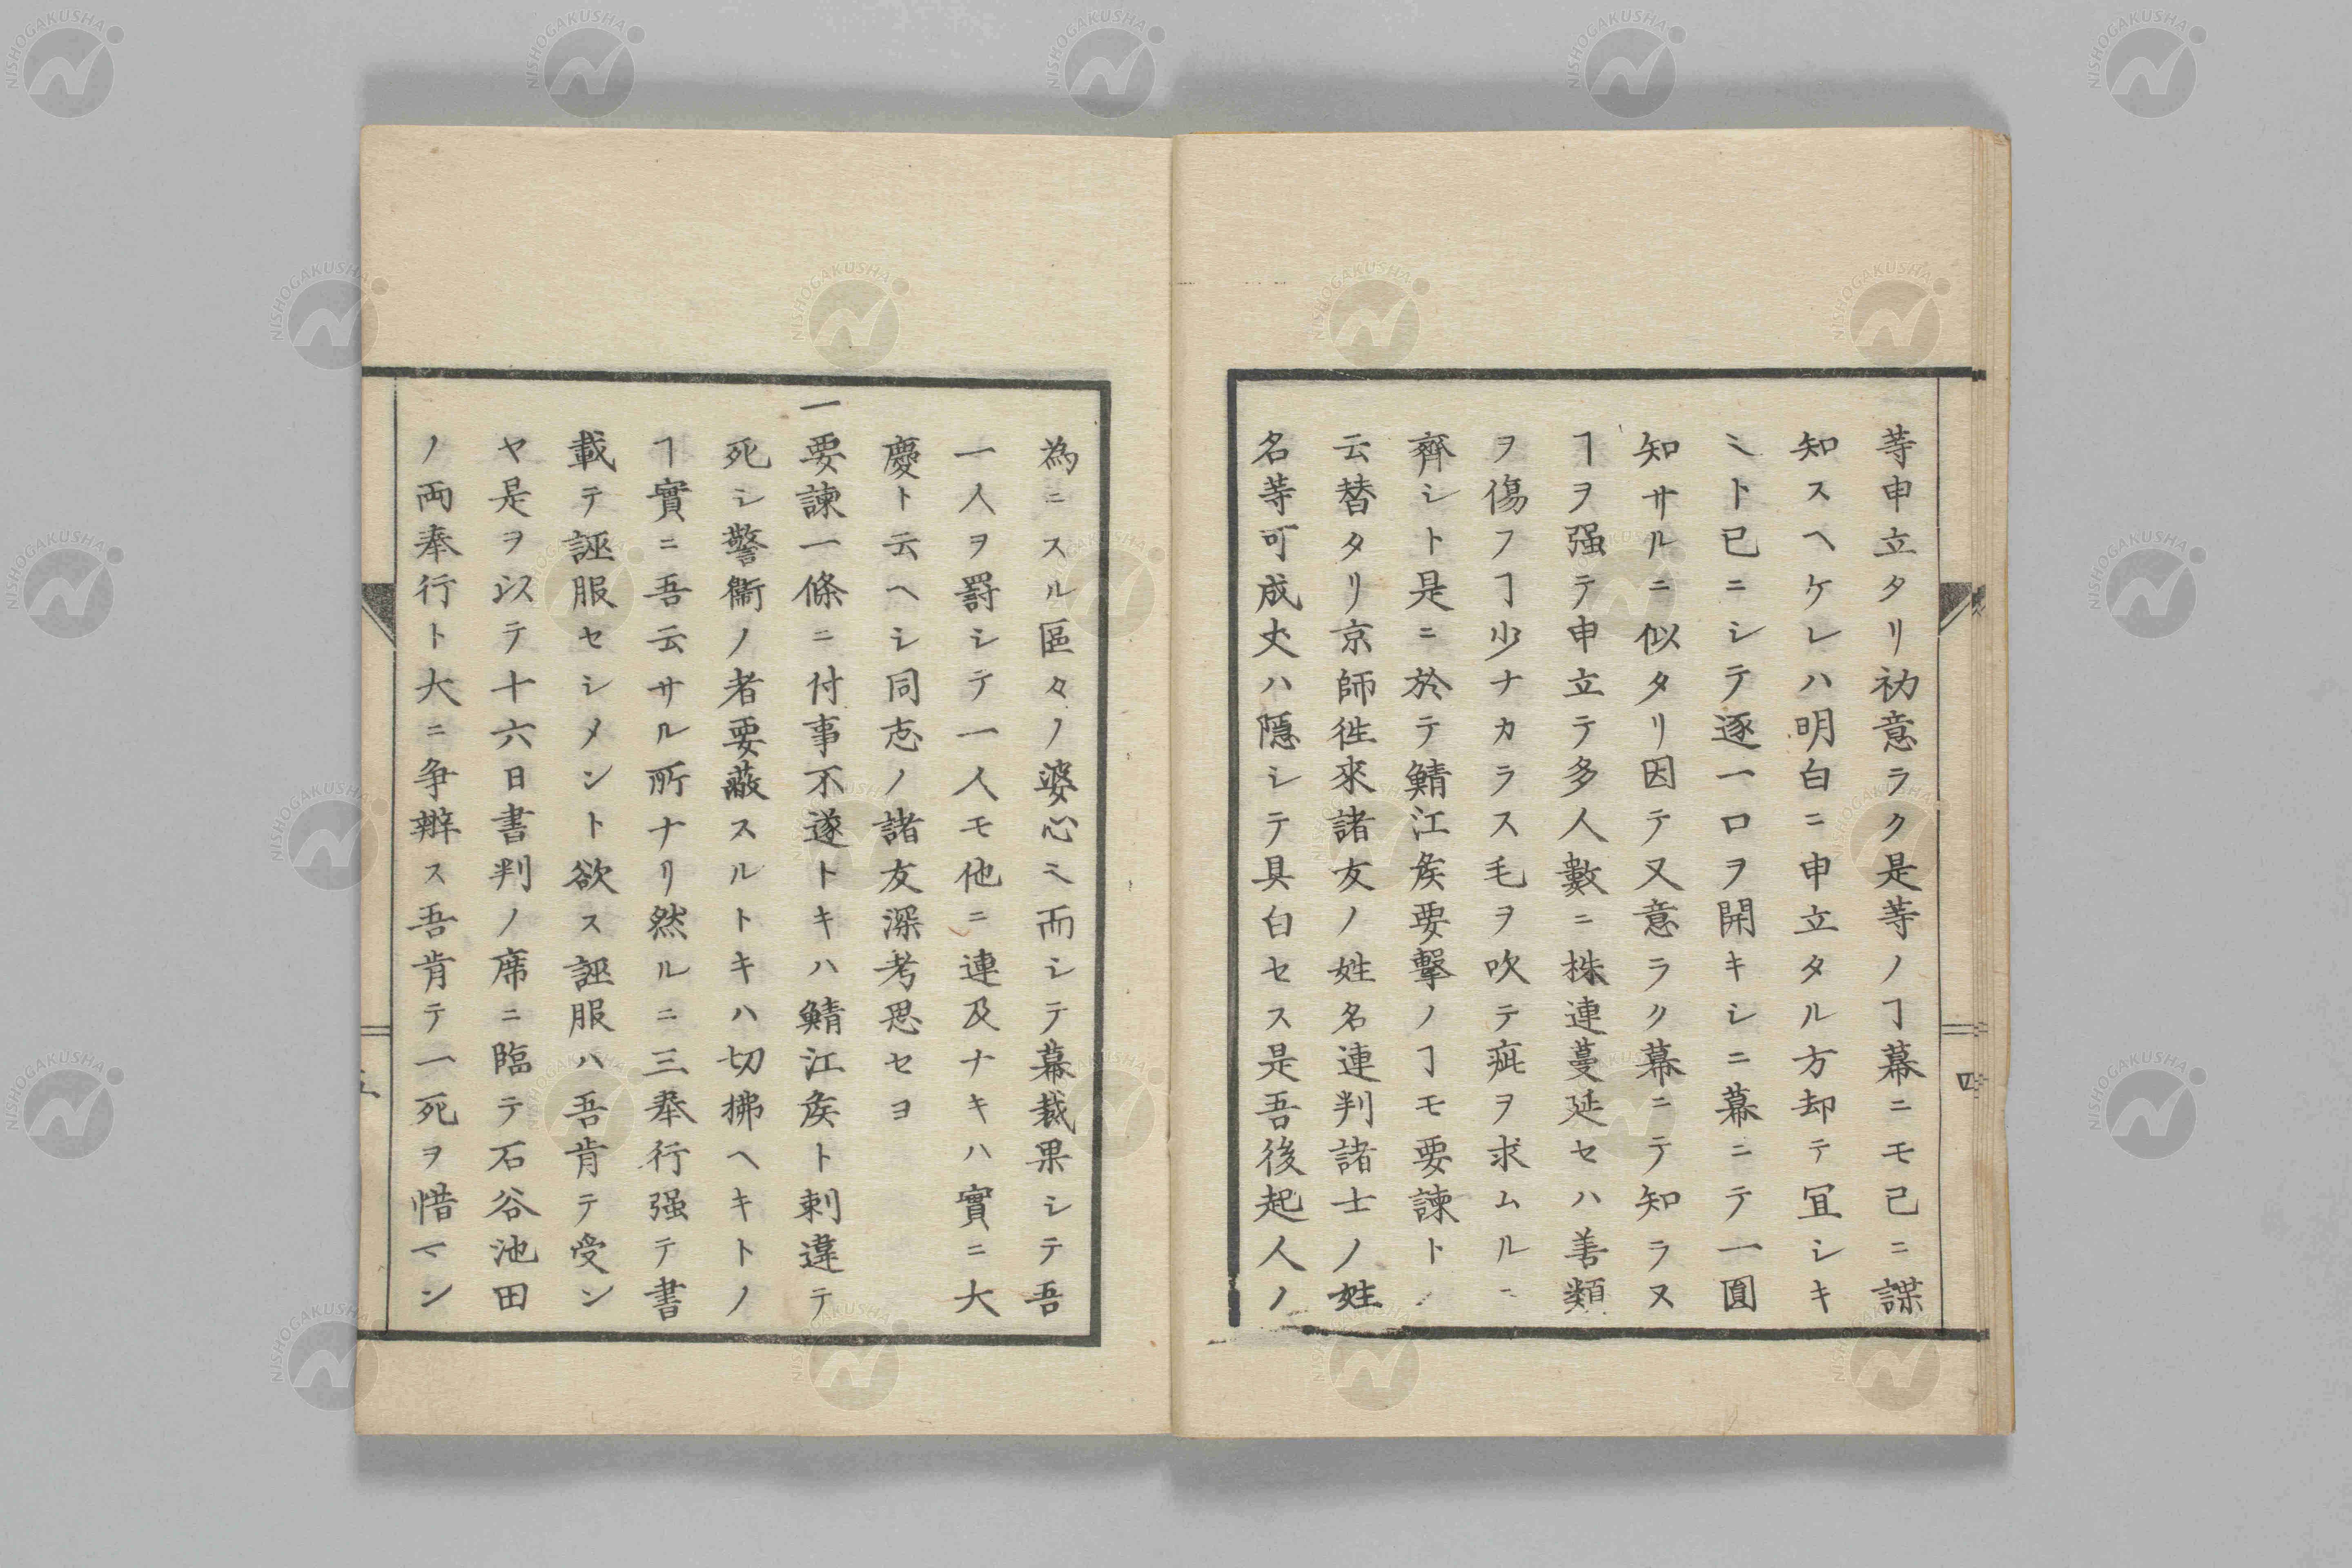 等申立タリ初意ラク是等ノヿ幕ニモ已ニ諜
知スヘケレハ明白ニ申立タル方却テ冝シキ
ミト已ニシテ逐一口ヲ開キシニ幕ニテ一圓
知サルニ似タリ因テ又意ラク幕ニテ知ラヌ
ヿヲ强テ申立テ多人數ニ株連蔓延セハ善類
ヲ傷フヿ少ナカラス毛ヲ吹テ疵ヲ求ムルニ
齊シト是ニ於テ鯖江矦要擊ノヿモ要諫ト
云替タリ京師徃來諸友ノ姓名連判諸士ノ姓
名等可成丈ハ隱シテ具白セス是吾後起人ノ
四
為ニスル區々ノ婆心ミ而シテ幕裁果シテ吾
一人ヲ罸シテ一人モ他ニ連及ナキハ實ニ大
慶ト云ヘシ同志ノ諸友深考思セヨ
一要諫一條ニ付事不遂トキハ鯖江矦ト刺違テ
死シ警衞ノ者要蔽スルトキハ切拂ヘキトノ
ヿ實ニ吾云サル所ナリ然ルニ三奉行强テ書
載テ誣服セシメント欲ス誣服ハ吾肯テ受ン
ヤ是ヲ以テ十六日書判ノ席ニ臨テ石谷池田
ノ両奉行ト大ニ争辨ス吾肯テ一死ヲ惜マン
NISHOGAKUSHA